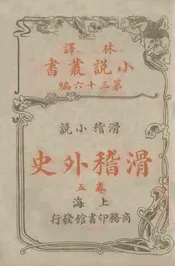 林譯
小說叢書
第三十六編
滑稽小說
滑稽外史
卷五
上海
商務印書館發行